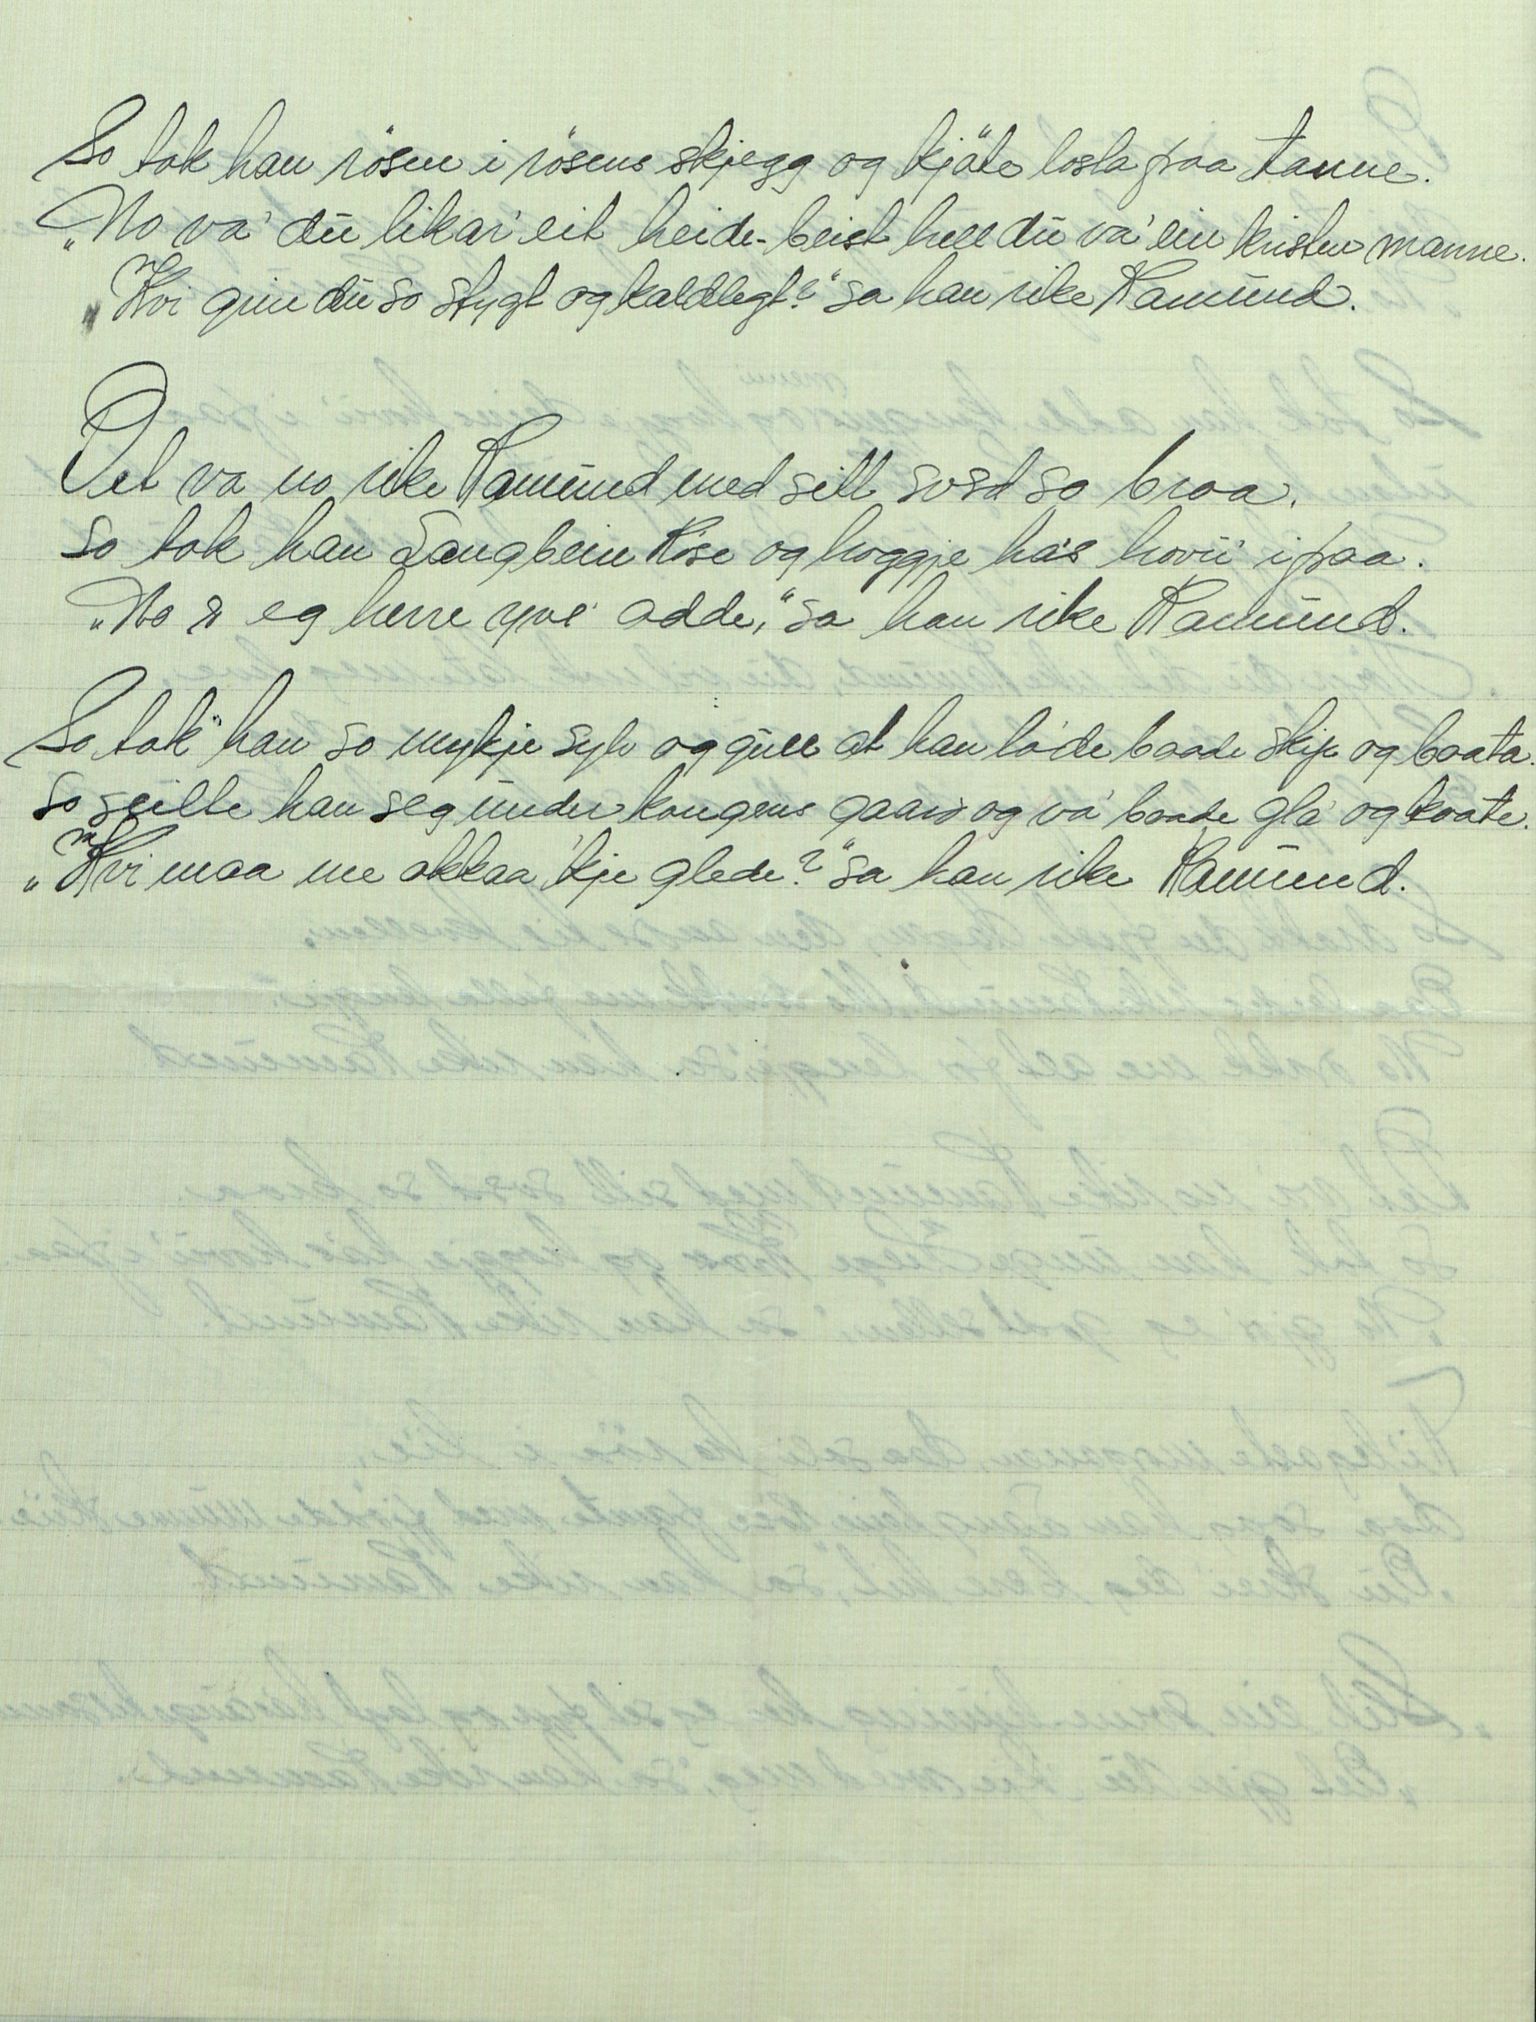 So tok han rösen i rösens skjegg og kjöte losla paa tanne.
„No va' du likar' eit heide-beist hell du va' ein kristen manne.
„Kvi grin du so stygt og kaldlegt?" sa han rike Ramund.
Det va no rike Ramund med sitt svær so braa.
So tok han Langbein Rise og hoggje has hovu' ipaa.
„No æ eg herre yve' adde," sa han rike Ramund.
So tok han so mykje sylv og gull at han lo'de baade skip og baata.
So seilte han seg under kongens gaard og va' baade gla' og kaate.
„Kvi maa me okkaa 'kje glede?" sa han rike Ramund.